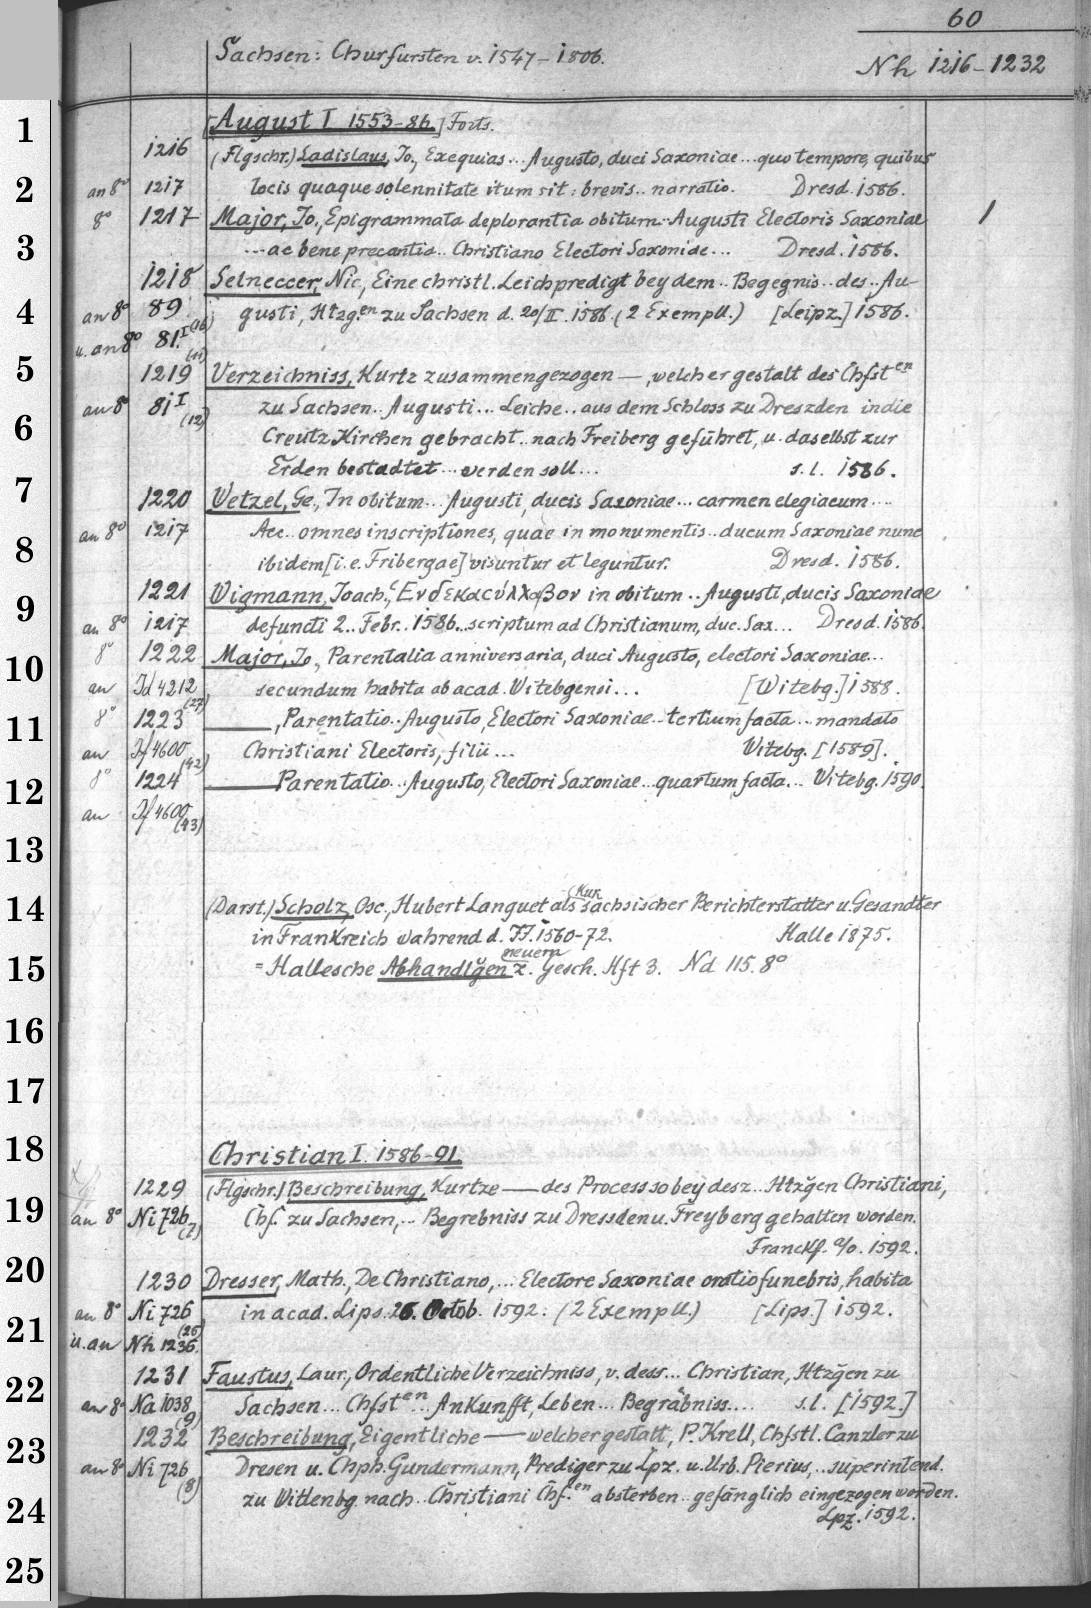 60
Sachsen: Churfürsten v. 1547-1806.
Nh 1216-1232
1
[August I 1553-86.] Forts.
1216 (Flgschr.) Ladislaus, Jo., Exequias... Augusto, duci Saxoniae... quo tempore, quibus
2
an 8° 1217 locis quaque solennitate itum sit: brevis.. narratio. Dresd. 1586.
8° 1217 Major, Jo., Epigrammata deplorantia obitum.. Augusti Electoris Saxoniae 1
3
...ac bene precantia.. Christiano Electori Saxoniae... Dresd. 1586.
1218 Selneccer, Nic., Eine christl. Leichpredigt bey dem.. Begegnis.. des.. Au-
4
an 8° 89 gusti, Htzg.en zu Sachsen d. 20/II. 1586. (2 Exempll.) [Leipz.] 1586.
(16)
u. an 8° 81.I
(11)
5
1219 Verzeichniss, Kurtz zusammengezogen —, welcher gestalt des Chfsten
an 8° 81I zu Sachsen.. Augusti... Leiche.. aus dem Schloss zu Dreszden in die
(12)
6
Creutz Kirchen gebracht.. nach Freiberg geführet, u. daselbst zur
Erden bestadtet... werden soll... s.l. 1586.
7
1220 Wetzel, Ge., In obitum... Augusti, ducis Saxoniae... carmen elegiacum....
an 8° 1217 Acc.. omnes inscriptiones, quae in monumentis.. ducum Saxoniae nunc
8
ibidem [i.e. Fribergae] visuntur et leguntur. Dresd. 1586.
1221 Wigmann, Joach., Ἑνδεκασύλλαβον in obitum.. Augusti, ducis Saxoniae
9
an 8° 1217 defuncti 2.. Febr.. 1586... scriptum ad Christianum, duc. Sax... Dresd. 1586.
8° 1222 Major, Jo., Parentalia anniversaria, duci Augusto, electori Saxoniae...
10
an Id 4212 secundum habita ab acad. Witebgensi... [Witebg.] 1588.
(27)
8° 1223 ——, Parentatio.. Augusto, Electori Saxoniae.. tertium facta... mandato
11
an If 4600 Christiani Electoris, filii... Witebg. [1589].
(42)
8° 1224 —— Parentatio.. Augusto, Electori Saxoniae... quartum facta... Witebg. 1590.
12
an If 4600
(43)
13
14
(Darst.) Scholz, Osc., Hubert Languet als (Kur sächsischer Berichterstatter u. Gesandter
in Frankreich während d. JJ. 1560-72. Halle 1875.
15
neuern
= Hallesche Abhandlgen z. Gesch. Hft 3. Nd 115. 8°
16
17
18
Christian I. 1586-91.
1229 (Flgschr.) Beschreibung, Kurtze — des Process so bey desz... Htzgen Christiani,
19
an 8° Ni 726 Chf. zu Sachsen,.. Begrebniss zu Dressden u. Freyberg gehalten worden.
(7)
Franckf. a/o. 1592.
20
1230 Dresser, Math., De Christiano,... Electore Saxoniae oratio funebris, habita
an 8° Ni 726 in acad. Lips. 26. Octob. 1592. (2 Exempll.) [Lips.] 1592.
(26)
21
u. an Nh 1236.
1231 Faustus, Laur., Ordentliche Verzeichniss, v. dess... Christian, Htzgen zu
22
an 8° Na 1038 Sachsen... Chfsten.. Ankunfft, Leben... Begräbniss.... s.l. [1592.]
(9)
1232 Beschreibung, Eigentliche — welcher gestalt, P. Krell, Chfstl. Canzler zu
23
an 8° Ni 726 Dresen u. Chph. Gundermann, Prediger zu Lpz. u. Urb. Pierius,.. superintend.
(8)
zu Wittenbg nach.. Christiani Chf.en absterben.. gefänglich eingezogen worden.
24
Lpz. 1592.
25